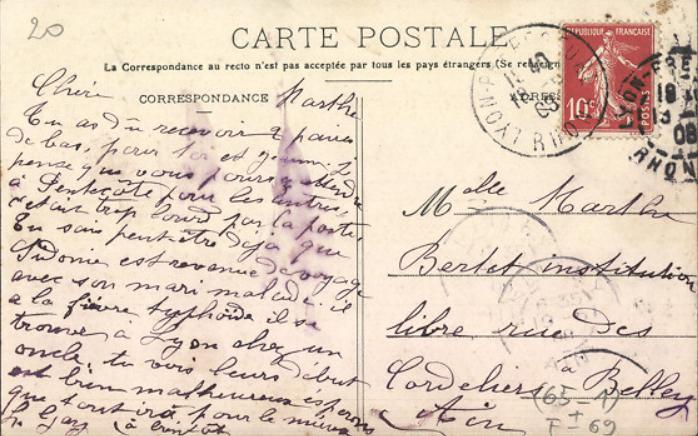 20
CARTE POSTALE
La Correspondance au recto n'est pas acceptée par tous les pays étrangers (Se renseign
CORRESPONDANCE
ADRES
RÉPUBLIQUE FRANÇAISE
10c
POSTES
LYON
RHONE
Chère Marthe
Tu as dû recevoir 2 paires
de bas, pour Mr et
pense que vous pourrez attendre
à Pentecôte pour les autres,
c'était trop lourd par la poste,
Tu sais peut être déjà que
Sidonie est revenue de voyage
avec son mari malade il
a la fièvre typhoïde il se
trouve à Lyon chez un
oncle, tu vois leurs début
est bien malheureux espérons
que tout ira pour le mieux
à bientôt
Melle Marthe
Bertet institution
libre rue des
Cordeliers à Belley
Ain
(65 1)
F ± 69